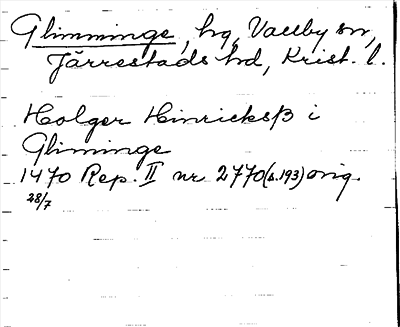 Glimminge, hg, Vallby sn,
Järrestads hd, Krist. l.
Holger Hinricksß i
Gliminge
1470 Rep. II nr 2770 (s.193) orig.
28/7